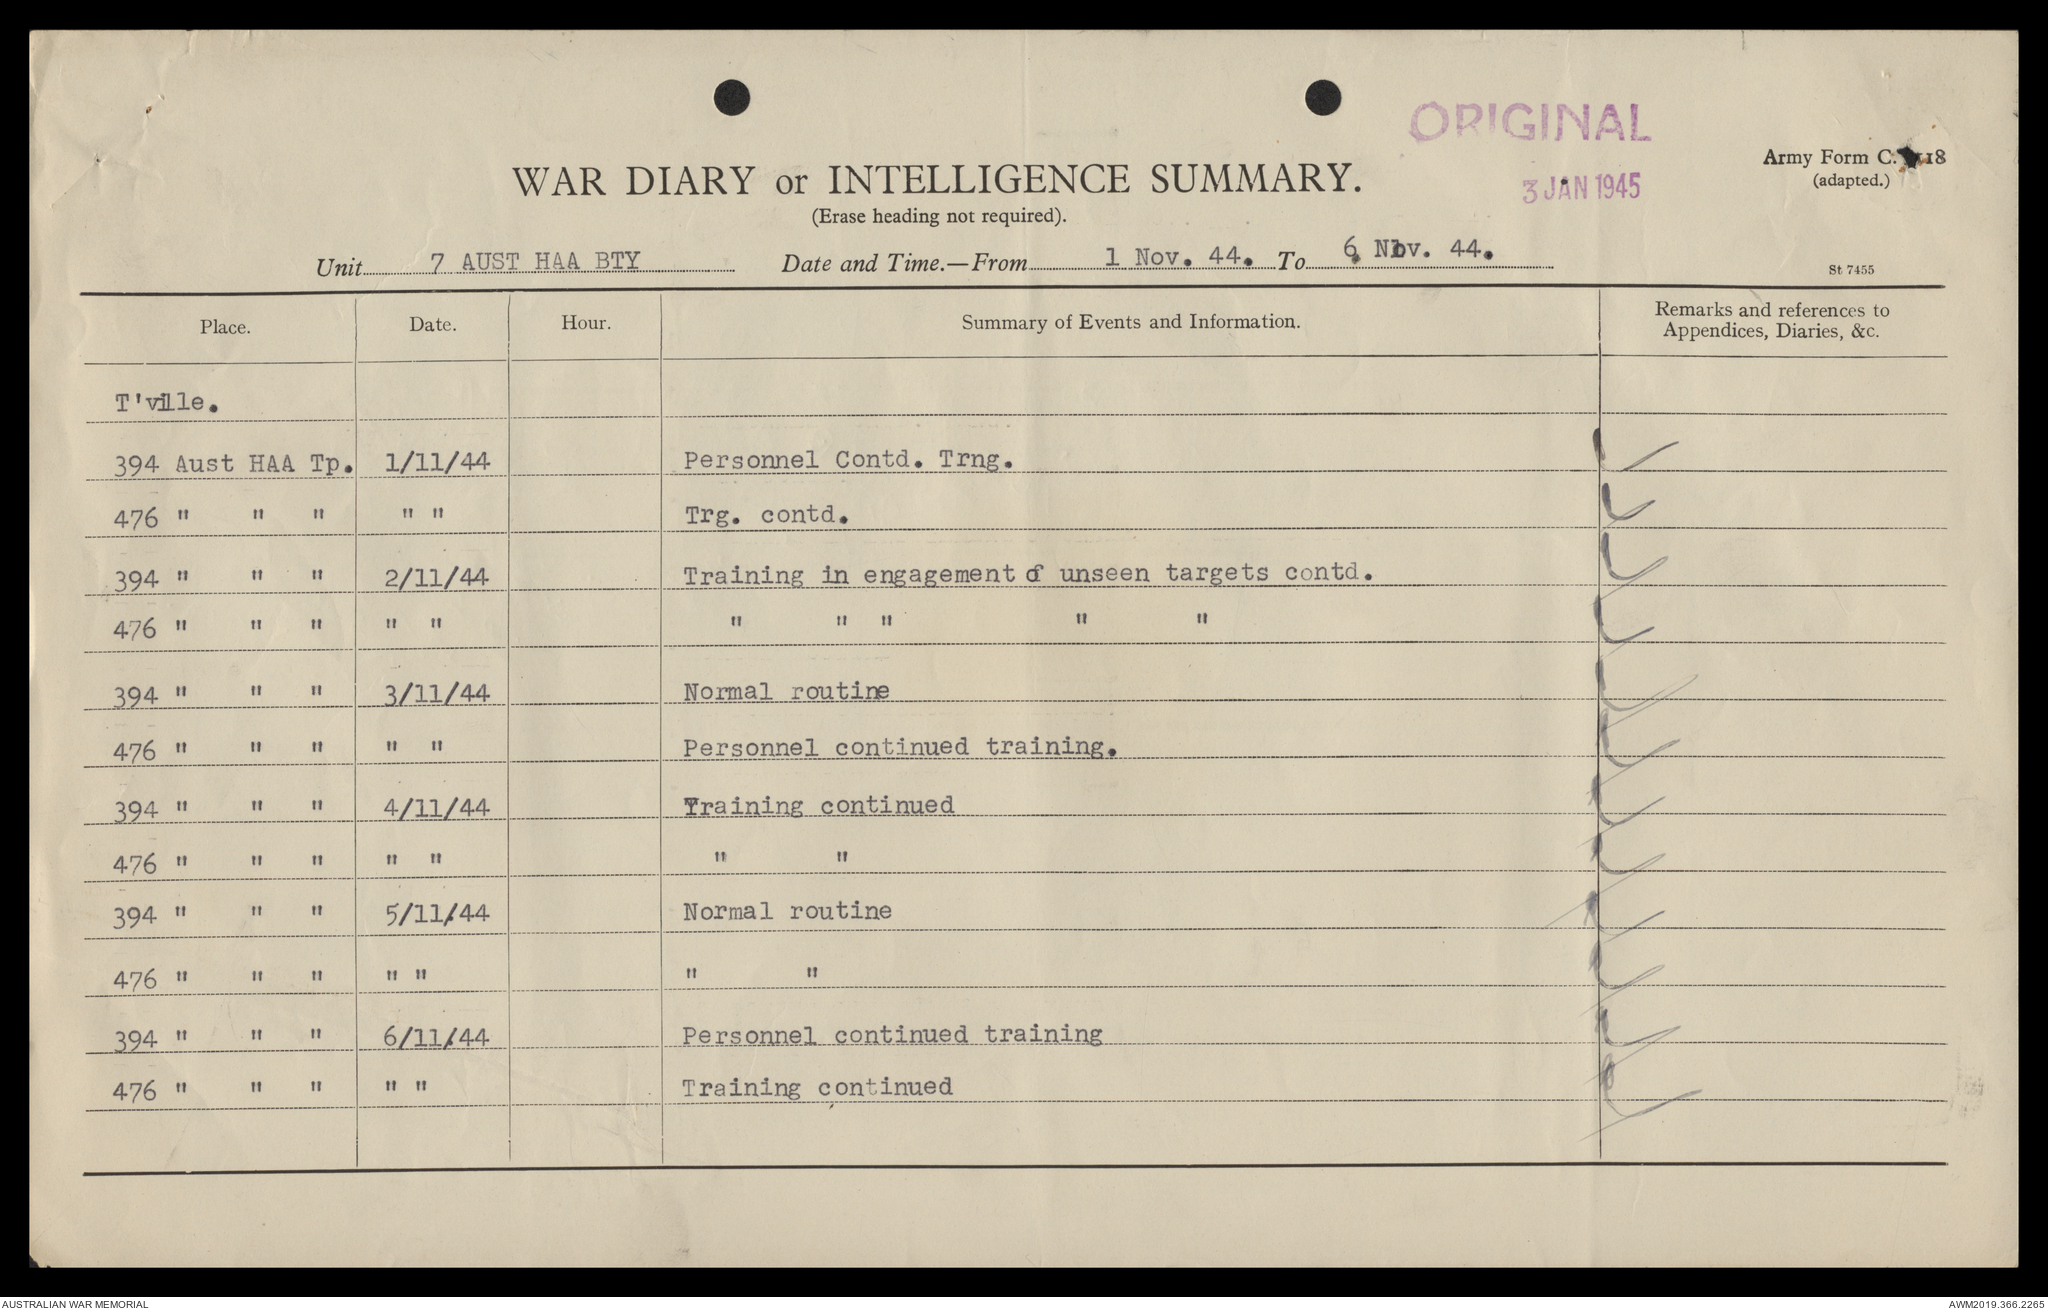 ORIGINAL
Army Form C. 118
(adapted.)
WAR DIARY or INTELLIGENCE SUMMARY.
3 JAN 1945
(Erase heading not required).
Unit 7 AUST HAA BTY Date and Time.—From 1 Nov. 44. To 6 Nov. 44.
St 7455
Place. Date. Hour. Summary of Events and Information. Remarks and references to
Appendices, Diaries, &c.
T'ville.
394 Aust HAA Tp. 1/11/44 Personnel Contd. Trng.
476 " " " " " Trg. contd.
394 " " " 2/11/44 Training in engagement of unseen targets contd.
476 " " " " " " " " " "
394 " " " 3/11/44 Normal routine
476 " " " " " Personnel continued training.
394 " " " 4/11/44 Training continued
476 " " " " " " "
394 " " " 5/11/44 Normal routine
476 " " " " " " "
394 " " " 6/11/44 Personnel continued training
476 " " " " " Training continued
AUSTRALIAN WAR MEMORIAL AWM2019.366.2265